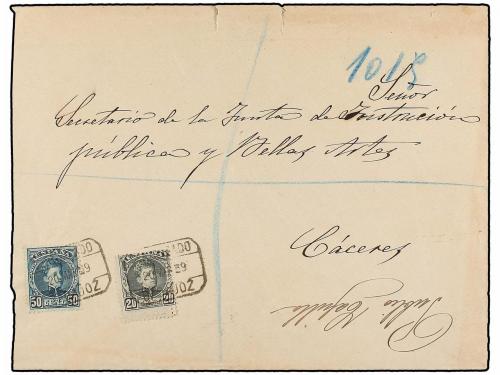 1015
Señor
Secretario de la Junta de Instrución
pública y Bellas Artes
Cáceres
ESPAÑA
50 CENT 50
20 20